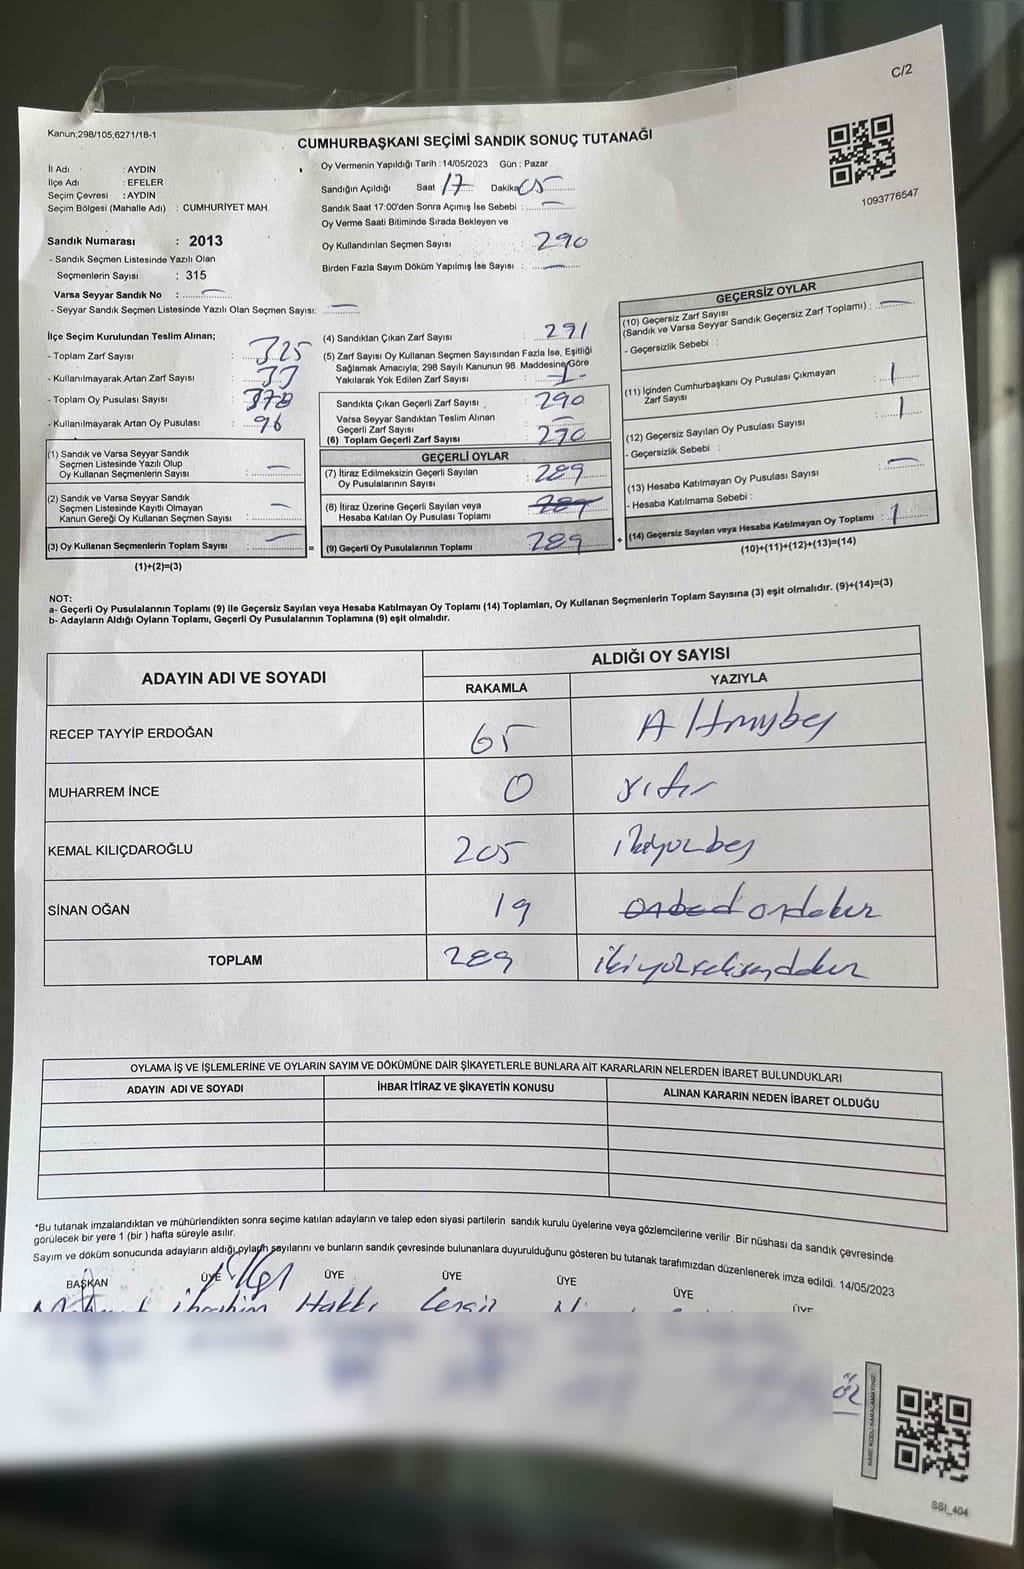 C/2
Kanun;298/105,6271/18-1
CUMHURBAŞKANI SEÇİMİ SANDIK SONUÇ TUTANAĞI
1093776547
İl Adı : AYDIN
İlçe Adı : EFELER
Seçim Çevresi : AYDIN
Seçim Bölgesi (Mahalle Adı) : CUMHURİYET MAH.
Sandık Numarası : 2013
- Sandık Seçmen Listesinde Yazılı Olan
Seçmenlerin Sayısı : 315
Varsa Seyyar Sandık No : —
- Seyyar Sandık Seçmen Listesinde Yazılı Olan Seçmen Sayısı: —
Oy Vermenin Yapıldığı Tarih : 14/05/2023 Gün : Pazar
Sandığın Açıldığı Saat 17 Dakika 05
Sandık Saat 17:00'den Sonra Açımış İse Sebebi : —
Oy Verme Saati Bitiminde Sırada Bekleyen ve
Oy Kullandırılan Seçmen Sayısı : 290
Birden Fazla Sayım Döküm Yapılmış İse Sayısı : —
İlçe Seçim Kurulundan Teslim Alınan;
- Toplam Zarf Sayısı : 325
- Kullanılmayarak Artan Zarf Sayısı :
- Toplam Oy Pusulası Sayısı :
- Kullanılmayarak Artan Oy Pusulası : 96
(1) Sandık ve Varsa Seyyar Sandık
Seçmen Listesinde Yazılı Olup
Oy Kullanan Seçmenlerin Sayısı : —
(2) Sandık ve Varsa Seyyar Sandık
Seçmen Listesinde Kayıtlı Olmayan
Kanun Gereği Oy Kullanan Seçmen Sayısı : —
(3) Oy Kullanan Seçmenlerin Toplam Sayısı : —
(1)+(2)=(3)
(4) Sandıktan Çıkan Zarf Sayısı : 291
(5) Zarf Sayısı Oy Kullanan Seçmen Sayısından Fazla İse, Eşitliği
Sağlamak Amacıyla; 298 Sayılı Kanunun 98. Maddesine Göre
Yakılarak Yok Edilen Zarf Sayısı : 1
Sandıkta Çıkan Geçerli Zarf Sayısı : 290
Varsa Seyyar Sandıktan Teslim Alınan
Geçerli Zarf Sayısı : —
(6) Toplam Geçerli Zarf Sayısı : 290
GEÇERLİ OYLAR
(7) İtiraz Edilmeksizin Geçerli Sayılan
Oy Pusulalarının Sayısı : 289
(8) İtiraz Üzerine Geçerli Sayılan veya
Hesaba Katılan Oy Pusulası Toplamı : 289
= (9) Geçerli Oy Pusulalarının Toplamı : 289
GEÇERSİZ OYLAR
(10) Geçersiz Zarf Sayısı
(Sandık ve Varsa Seyyar Sandık Geçersiz Zarf Toplamı) : —
- Geçersizlik Sebebi :
(11) İçinden Cumhurbaşkanı Oy Pusulası Çıkmayan
Zarf Sayısı : 1
(12) Geçersiz Sayılan Oy Pusulası Sayısı : 1
- Geçersizlik Sebebi :
(13) Hesaba Katılmayan Oy Pusulası Sayısı : —
- Hesaba Katılmama Sebebi :
+ (14) Geçersiz Sayılan veya Hesaba Katılmayan Oy Toplamı : 1
(10)+(11)+(12)+(13)=(14)
NOT:
a- Geçerli Oy Pusulalarının Toplamı (9) ile Geçersiz Sayılan veya Hesaba Katılmayan Oy Toplamı (14) Toplamları, Oy Kullanan Seçmenlerin Toplam Sayısına (3) eşit olmalıdır. (9)+(14)=(3)
b- Adayların Aldığı Oyların Toplamı, Geçerli Oy Pusulalarının Toplamına (9) eşit olmalıdır.
ADAYIN ADI VE SOYADI
ALDIĞI OY SAYISI
RAKAMLA YAZIYLA
RECEP TAYYİP ERDOĞAN 65 Altmışbeş
MUHARREM İNCE 0 sıfır
KEMAL KILIÇDAROĞLU 205 ikiyüzbeş
SİNAN OĞAN 19 ondokuz
TOPLAM 289 ikiyüzseksendokuz
OYLAMA İŞ VE İŞLEMLERİNE VE OYLARIN SAYIM VE DÖKÜMÜNE DAİR ŞİKAYETLERLE BUNLARA AİT KARARLARIN NELERDEN İBARET BULUNDUKLARI
ADAYIN ADI VE SOYADI İHBAR İTİRAZ VE ŞİKAYETİN KONUSU ALINAN KARARIN NEDEN İBARET OLDUĞU
*Bu tutanak imzalandıktan ve mühürlendikten sonra seçime katılan adayların ve talep eden siyasi partilerin sandık kurulu üyelerine veya gözlemcilerine verilir .Bir nüshası da sandık çevresinde
görülecek bir yere 1 (bir ) hafta süreyle asılır.
Sayım ve döküm sonucunda adayların aldığı oyların sayılarını ve bunların sandık çevresinde bulunanlara duyurulduğunu gösteren bu tutanak tarafımızdan düzenlenerek imza edildi. 14/05/2023
BAŞKAN ÜYE ÜYE ÜYE ÜYE ÜYE ÜYE
Mehmet İbrahim Hakkı
KARE KODU KARALAMAYINIZ!
SSI_404